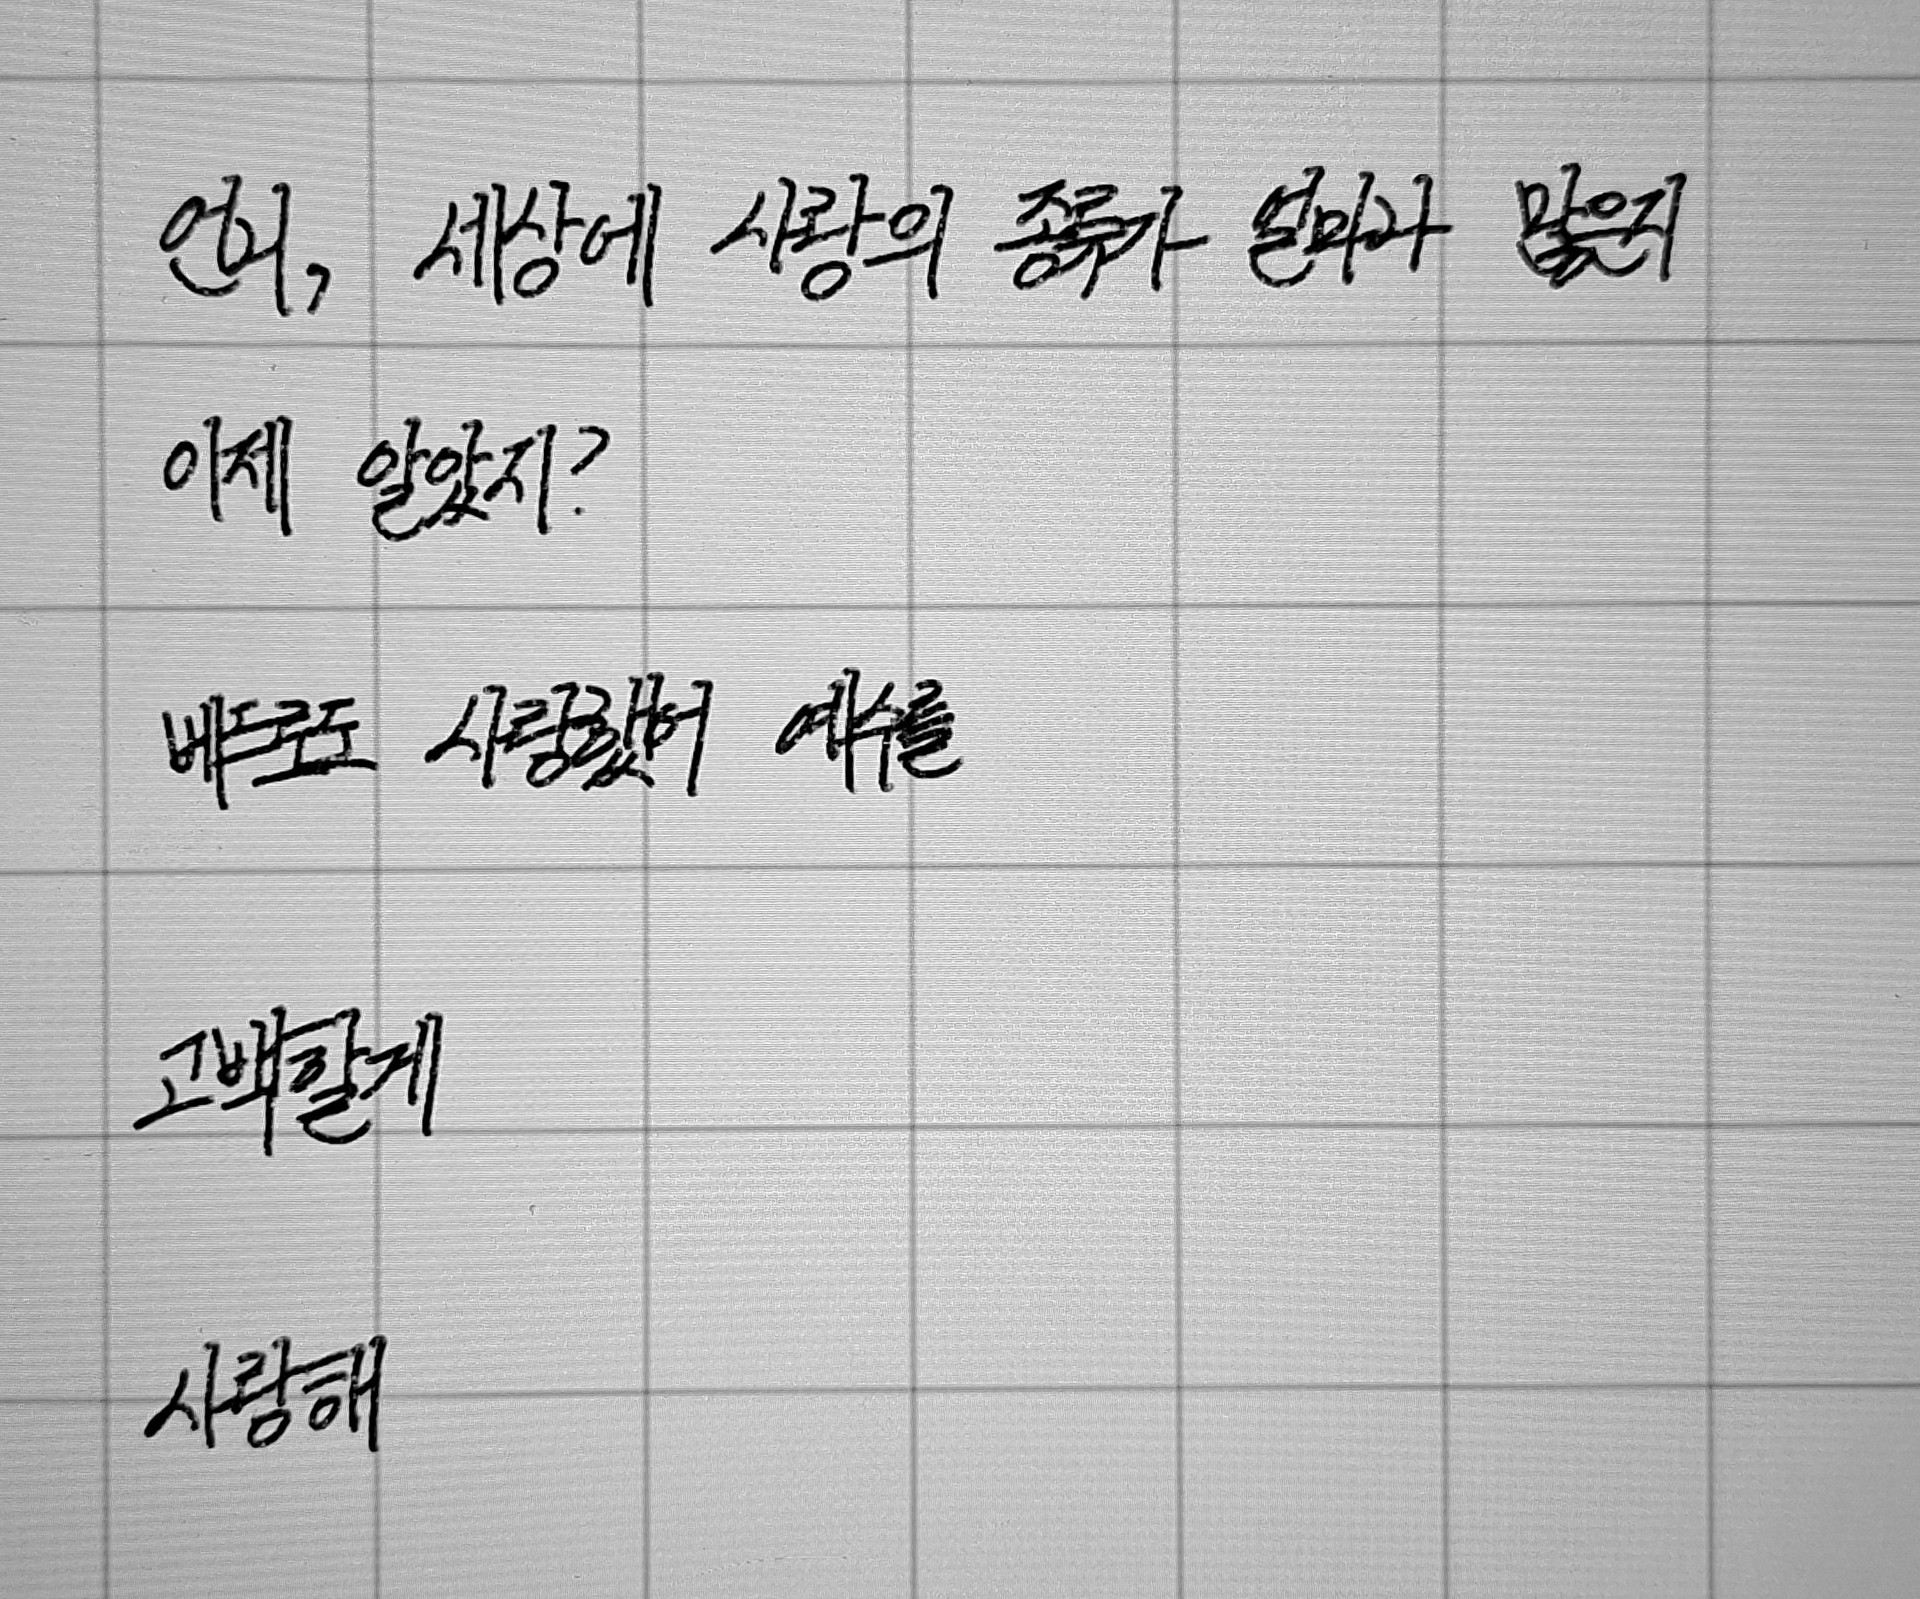 언니, 세상에 사랑의 종류가 얼마나 많은지
이제 알았지?
베드로도 사랑했어 예수를
고백할게
사랑해